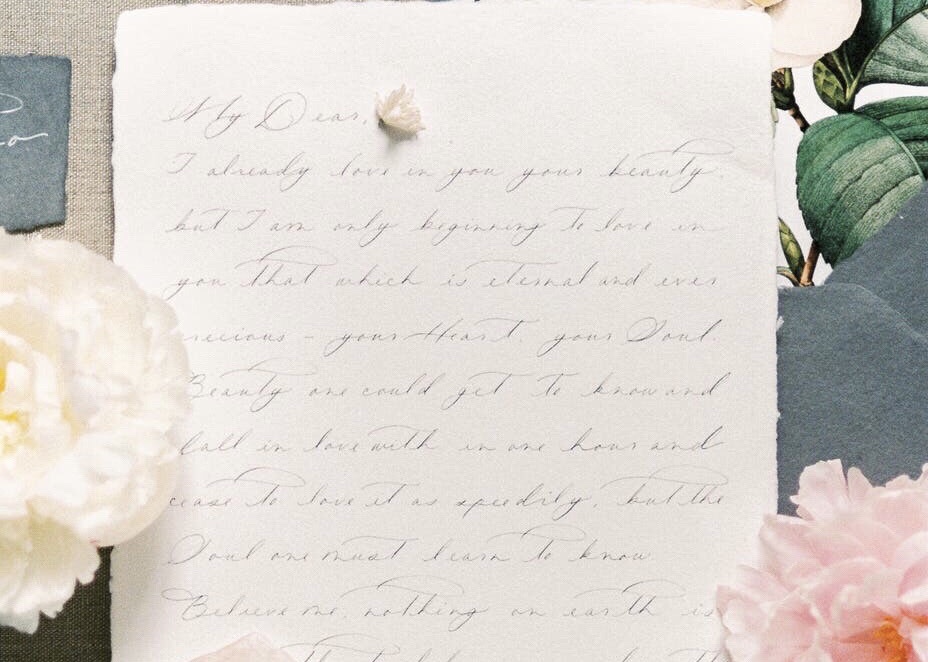 My Dear,
I already love in you your beauty,
but I am only beginning to love in
you that which is eternal and ever
precious - your Heart, your Soul.
Beauty one could get to know and
fall in love with in one hour and
cease to love it as speedily, but the
Soul one must learn to know
Believe me, nothing on earth is